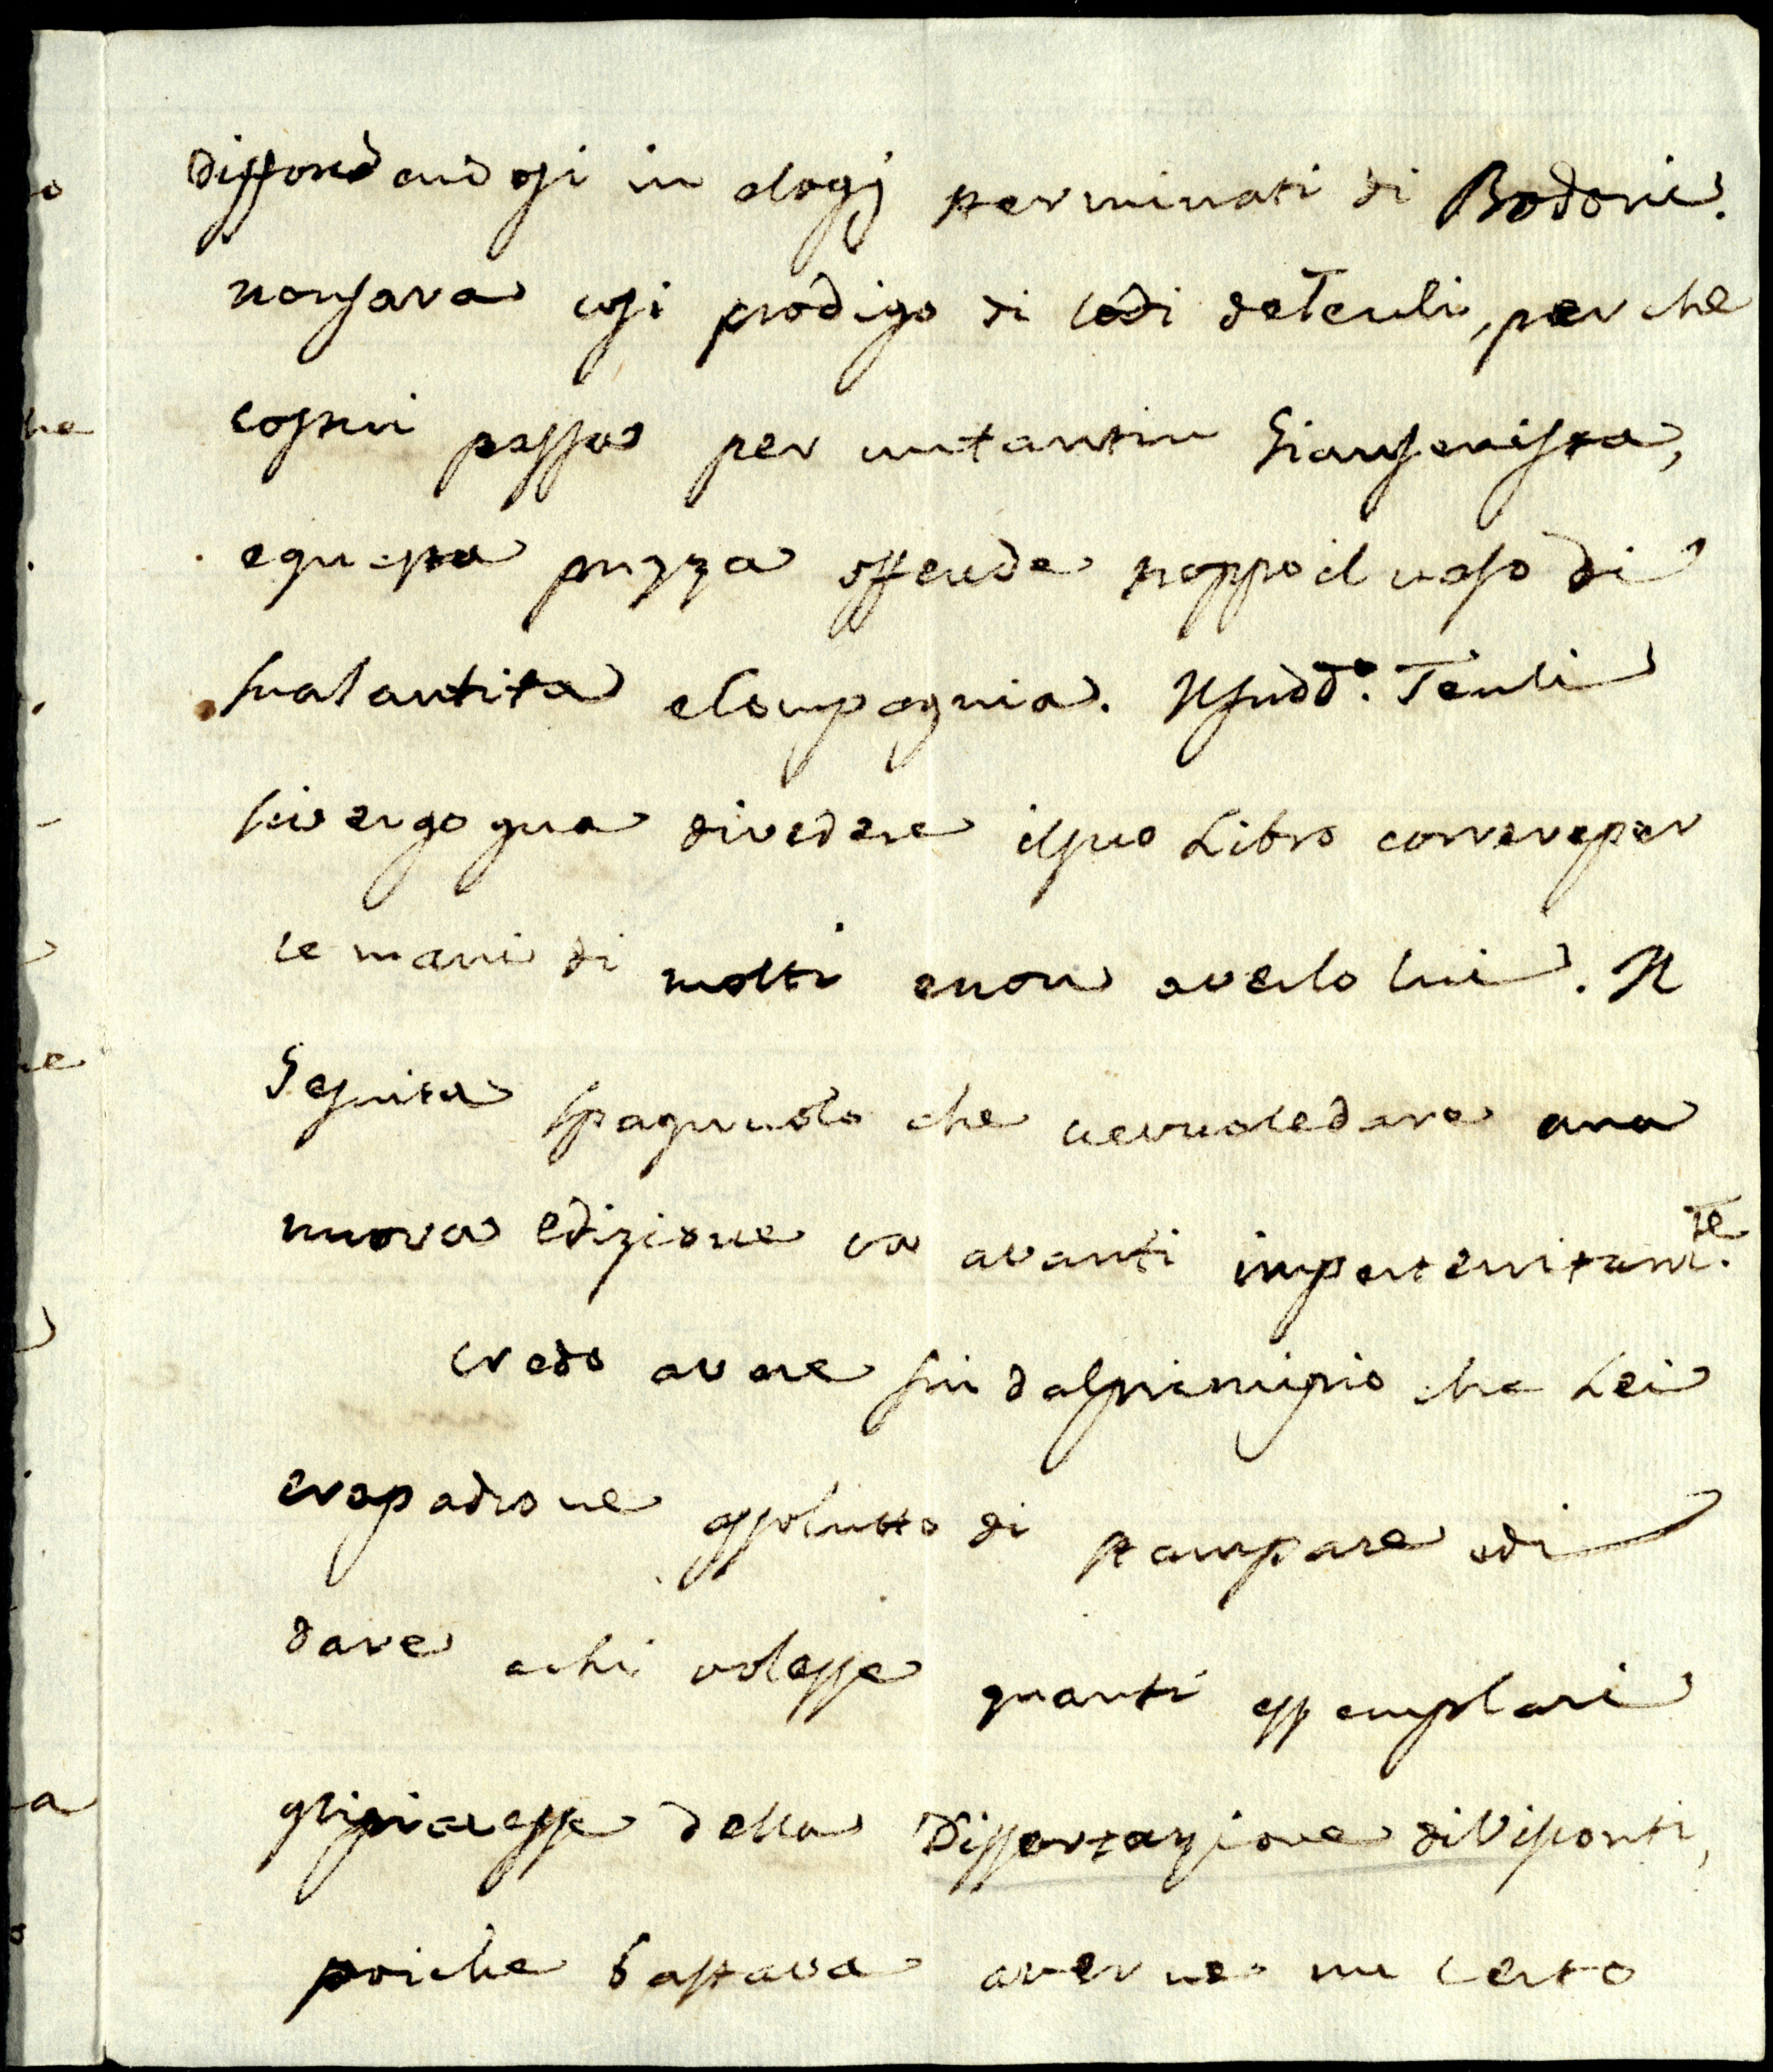 diffondendosi in elogj sterminati di Bodoni.
non sara cosi prodigo di lodi de Tenli, perche
costui passa per un tantin Giansenista,
e questa puzza offende troppo il naso di
sua Santita e Compagnia. Il sudd.º Tenli
si vergogna di vedere il suo Libro correre per
le mani di molti e non averlo lui. Il
Gesuita spagnuolo che ne vuole dare una
nuova edizione va avanti imperterritam.te
credo avere sin dal principio che Lei
era padrone assolutto di stampare e di
dare a chi volesse quanti essemplari
gli piacesse della Dissertazione di Visconti,
poiche bastava averne un certo